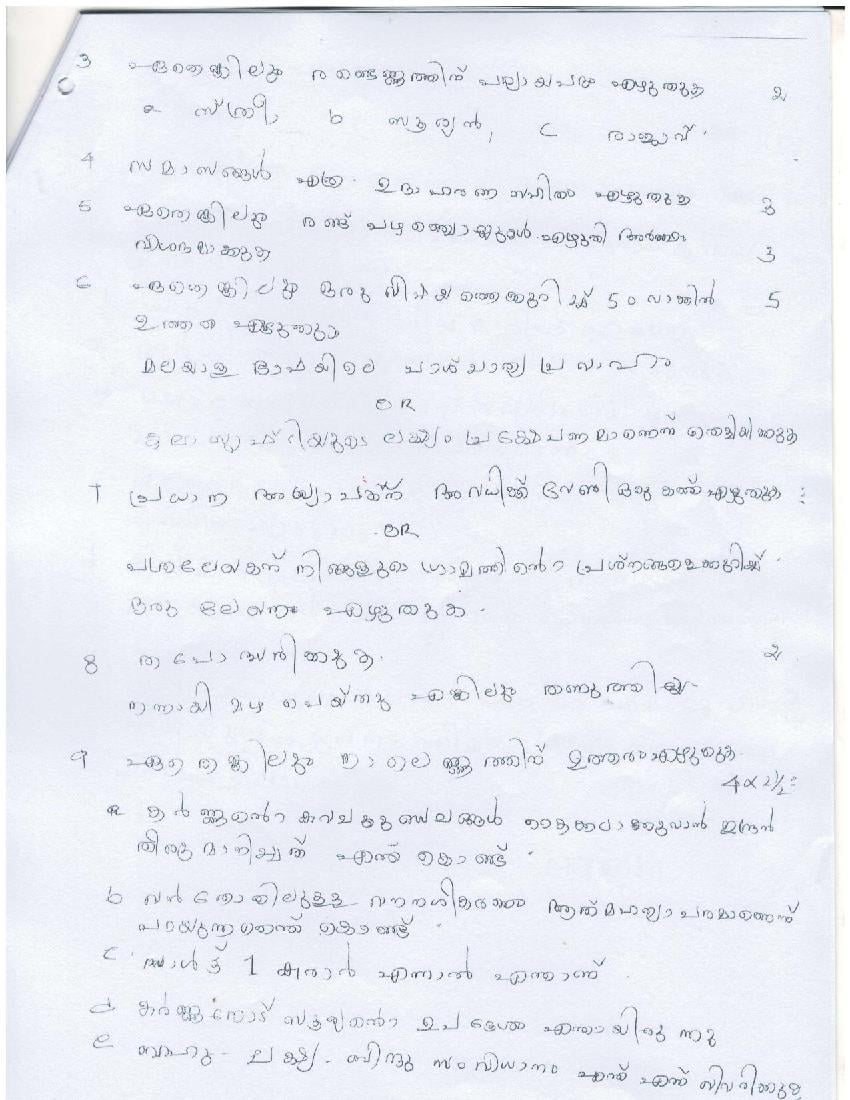 3 ഏതെങ്കിലും രണ്ടെണ്ണത്തിന് പര്യായപദം എഴുതുക 2
a സ്ത്രീ, b സൂര്യൻ, c രാജാവ്.
4 സമാസങ്ങൾ എത്ര. ഉദാഹരണ സഹിതം എഴുതുക 3
5 ഏതെങ്കിലും രണ്ട് പഴഞ്ചൊല്ലുകൾ എഴുതി അർത്ഥം
വിശദമാക്കുക 3
6 ഏതെങ്കിലും ഒരു വിഷയത്തെക്കുറിച്ച് 50 വാക്കിൽ 5
ഉത്തരം എഴുതുക
മലയാള ഭാഷയിലെ പാശ്ചാത്യ പ്രവാഹം
OR
കലാസൃഷ്ടിയുടെ ലക്ഷ്യം പ്രകോപനമാണെന്ന് തെളിയിക്കുക
7 പ്രധാന അദ്ധ്യാപകന് അവധിക്ക് വേണ്ടി ഒരു കത്ത് എഴുതുക :
OR
പത്രലേഖകന് നിങ്ങളുടെ ഗ്രാമത്തിന്റെ പ്രശ്നങ്ങളെക്കുറിച്ച്
ഒരു ലേഖനം എഴുതുക.
8 2
നന്നായി മഴ പെയ്തു എങ്കിലും തണുത്തില്ല
9 ഏതെങ്കിലും നാലെണ്ണത്തിന് ഉത്തരം എഴുതുക.
4 x 2½ =
a കർണ്ണന്റെ കവചകുണ്ഡലങ്ങൾ ഇന്ദ്രൻ
തീരുമാനിച്ചത് എന്ത് കൊണ്ട്.
b വൻതോതിലുള്ള വനനശീകരണം ആത്മഹത്യാപരമാണെന്ന്
പറയുന്നതെന്ത് കൊണ്ട്.
c 1 കരാർ എന്നാൽ എന്താണ്.
d കർണ്ണനോട് സൂര്യന്റെ ഉപദേശം എന്തായിരുന്നു
e ബാഹു - ലക്ഷ്യ - ബിന്ദു സംവിധാനം എന്ത് എന്ന് വിവരിക്കുക